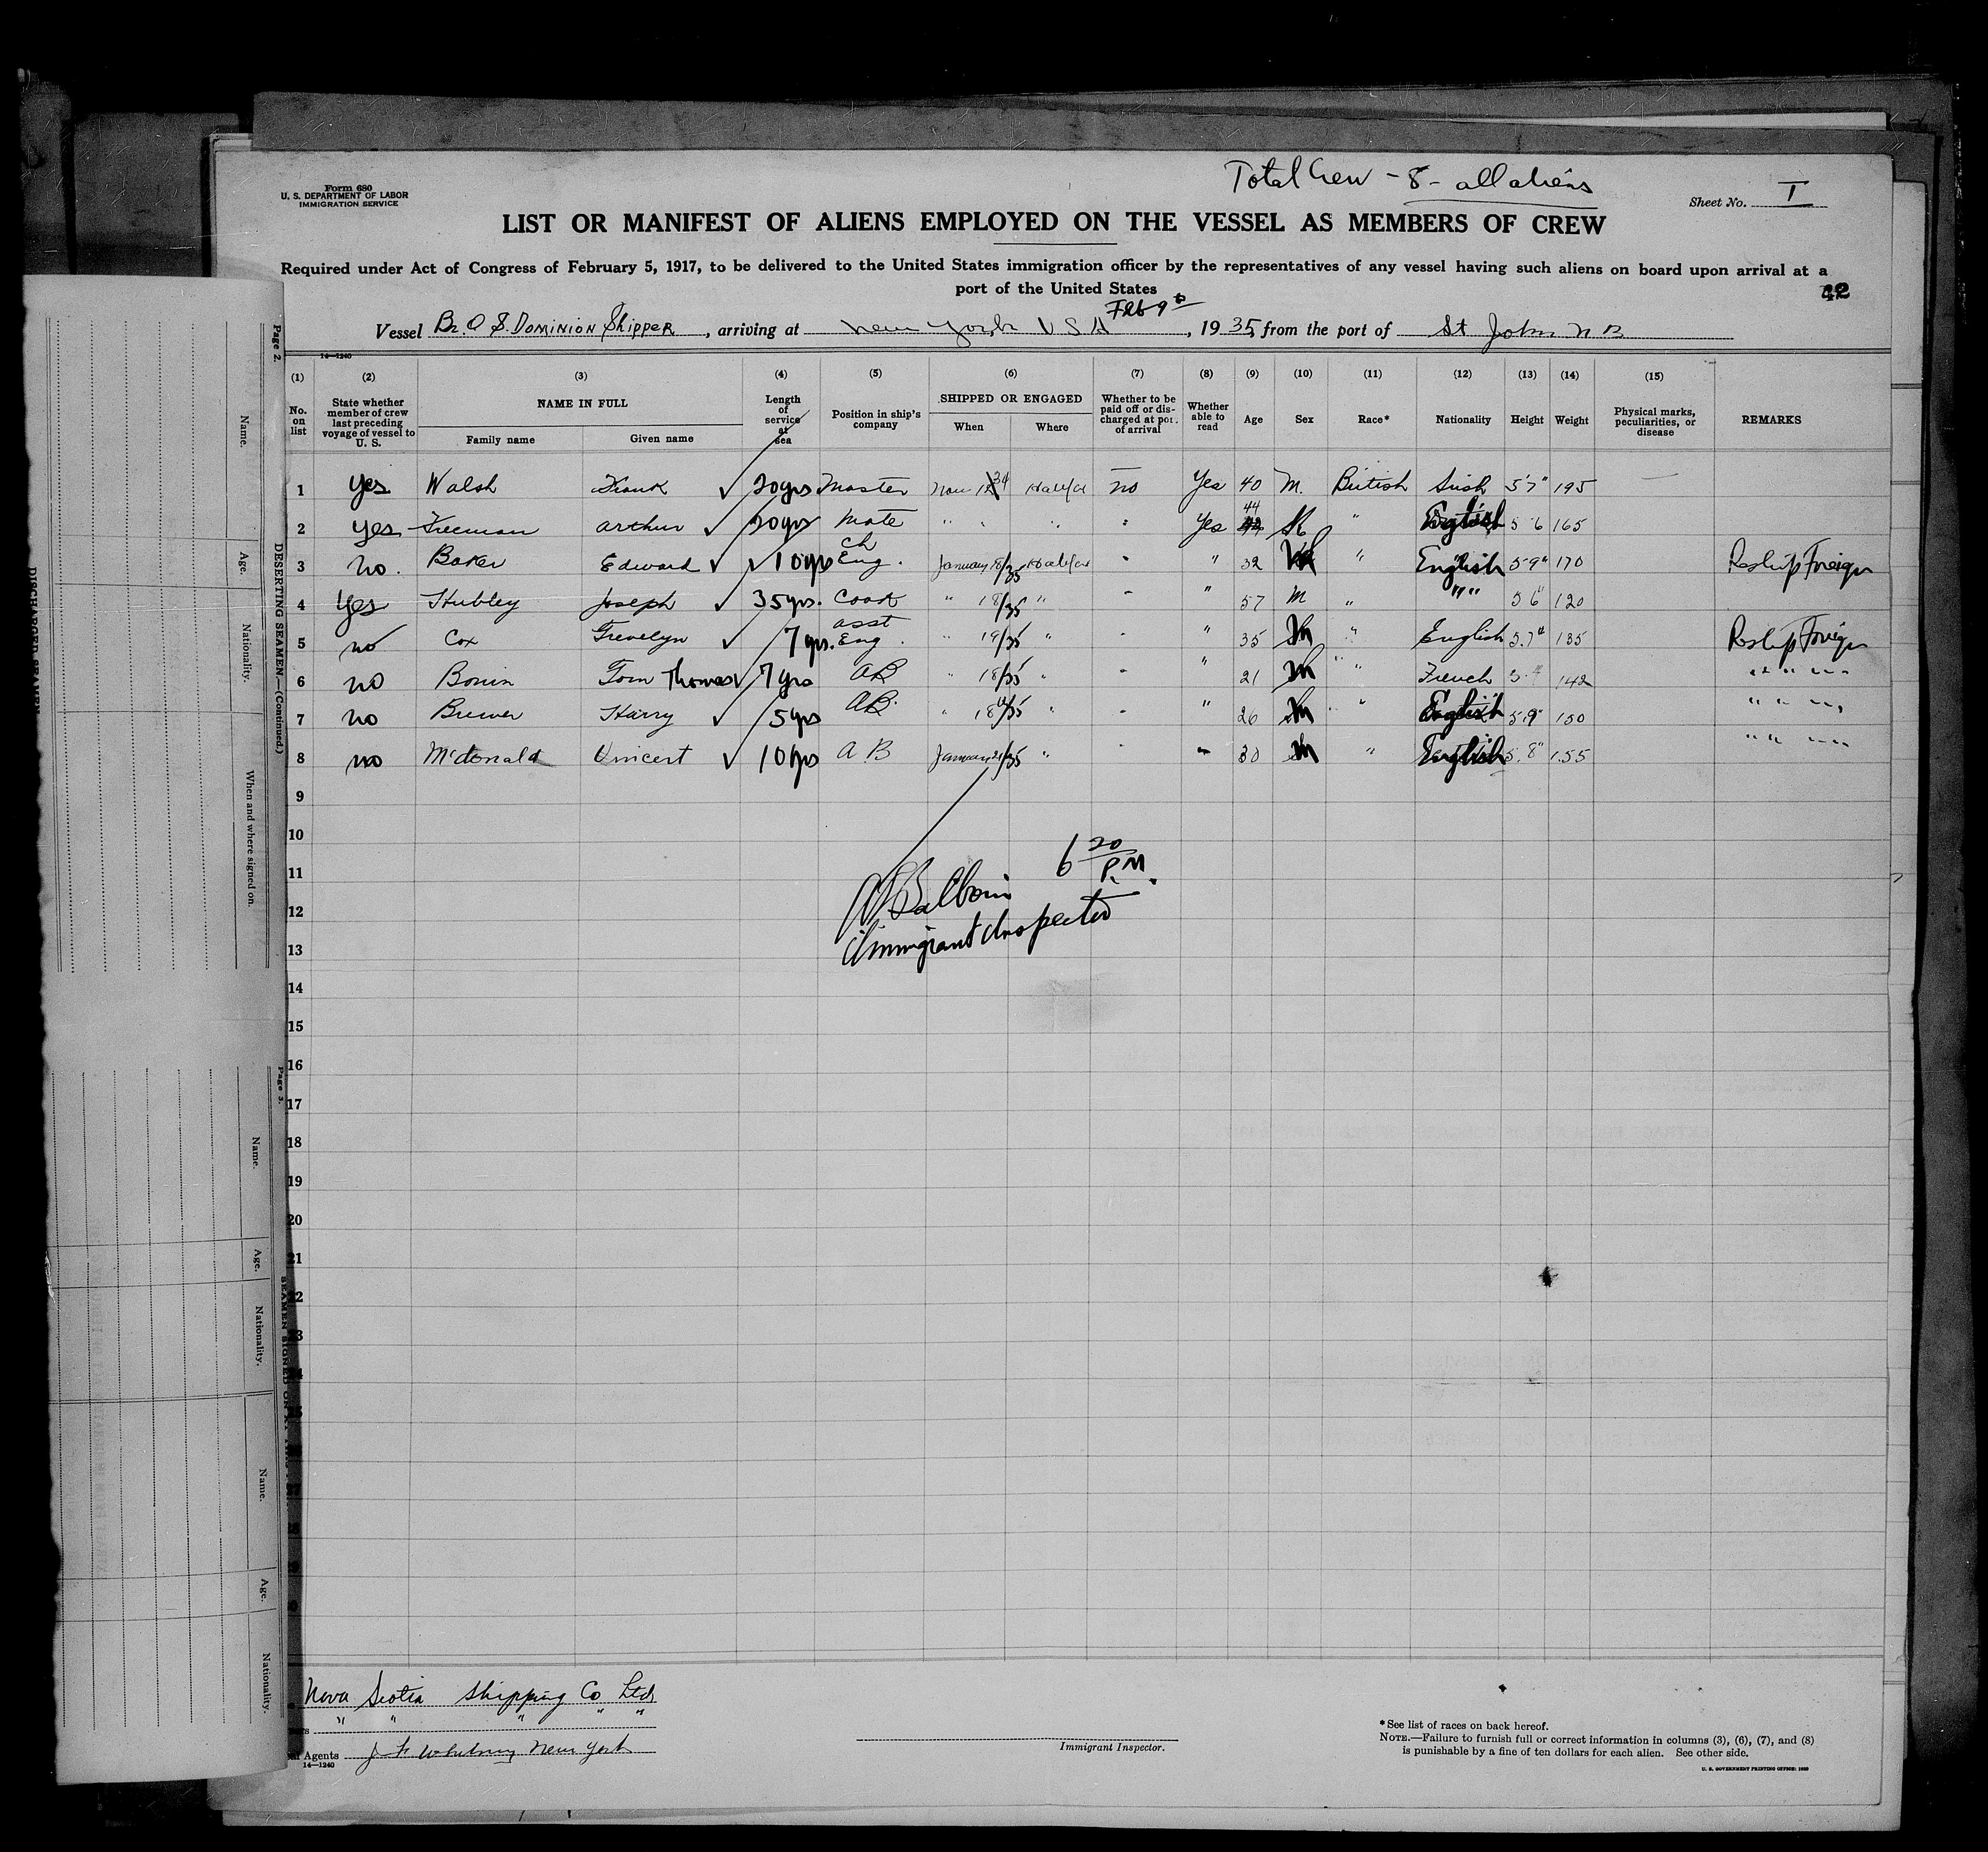 Total Crew - 8 - all aliens
Form 680
U. S. DEPARTMENT OF LABOR
IMMIGRATION SERVICE
Sheet No. I
LIST OR MANIFEST OF ALIENS EMPLOYED ON THE VESSEL AS MEMBERS OF CREW
Required under Act of Congress of February 5, 1917, to be delivered to the United States immigration officer by the representatives of any vessel having such aliens on board upon arrival at a
port of the United States
42
Feb 9th
Vessel Br. O. S. DOMINION Shipper, arriving at New York USA, 1935, from the port of St John N B
14—1240
(1) (2) (3) (4) (5) (6) (7) (8) (9) (10) (11) (12) (13) (14) (15)
No. on list
State whether member of crew last preceding voyage of vessel to U. S.
NAME IN FULL
Family name Given name
Length of service at sea
Position in ship's company
SHIPPED OR ENGAGED
When Where
Whether to be paid off or discharged at port of arrival
Whether able to read
Age Sex Race* Nationality Height Weight
Physical marks, peculiarities, or disease
REMARKS
1 Yes Walsh Frank 20yrs Master Nov 12 34 Halifax no Yes 40 M. British Irish 5'7" 195
2 Yes Freeman Arthur 20yrs Mate " " " " Yes 44 " English 5 6 165
3 no. Baker Edward 10yrs Ch Eng. January 18/35 Halifax " " 32 M " English 5'9" 170 Reship Foreign
4 Yes Hubley Joseph 35yrs. Cook " 18/35 " " " 57 M " " " 5 6" 120
5 no Cox Trevelyn 7yrs. asst Eng. " 19/35 " " " 35 M " English 5.7" 135 Reship Foreign
6 no Bonin Tom Thomas 7yrs AB " 18/35 " " " 21 M " " French 142 " " " "
7 no Brewer Harry 5yrs AB " 18/35 " " " 26 M " " English 5.9" 150 " " " "
8 no McDonald Vincent 10yrs A B January 21/35 " " " 30 M " English 5.8" 155 " " " "
9
10
11
12
13
14
15
16
17
18
19
20
21
6 20 P.M.
Immigrant Inspector
Nova Scotia Shipping Co Ltd
" " " " "
Agents J F Whitney New York
14—1240
Immigrant Inspector.
*See list of races on back hereof.
NOTE.—Failure to furnish full or correct information in columns (3), (6), (7), and (8)
is punishable by a fine of ten dollars for each alien. See other side.
U. S. GOVERNMENT PRINTING OFFICE: 1929
Page 2.
DESERTING SEAMEN.—(Continued.)
Name. Age. Nationality. When and where signed on.
DISCHARGED SEAMEN
Page 3.
Name. Age. Nationality.
Name. Age. Nationality.